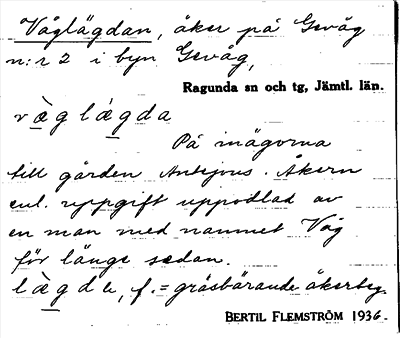 Våglägdan, åker på Gevåg
n:r 2 i byn Gevåg,
Ragunda sn och tg, Jämtl. län.
På inägorna
till gården Antejons. Åkern
enl. uppgift uppodlad av
en man med namnet Våg
för länge sedan.
f. = gräsbärande åkerteg.
BERTIL FLEMSTRÖM 1936.